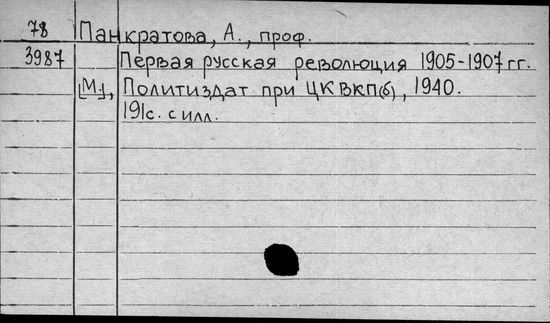 78 Панкратова, А., проф.
3987 Первая русская революция 1905-1907 гг.
[М.], Политиздат при ЦК ВКП(б), 1940.
191с. с илл.